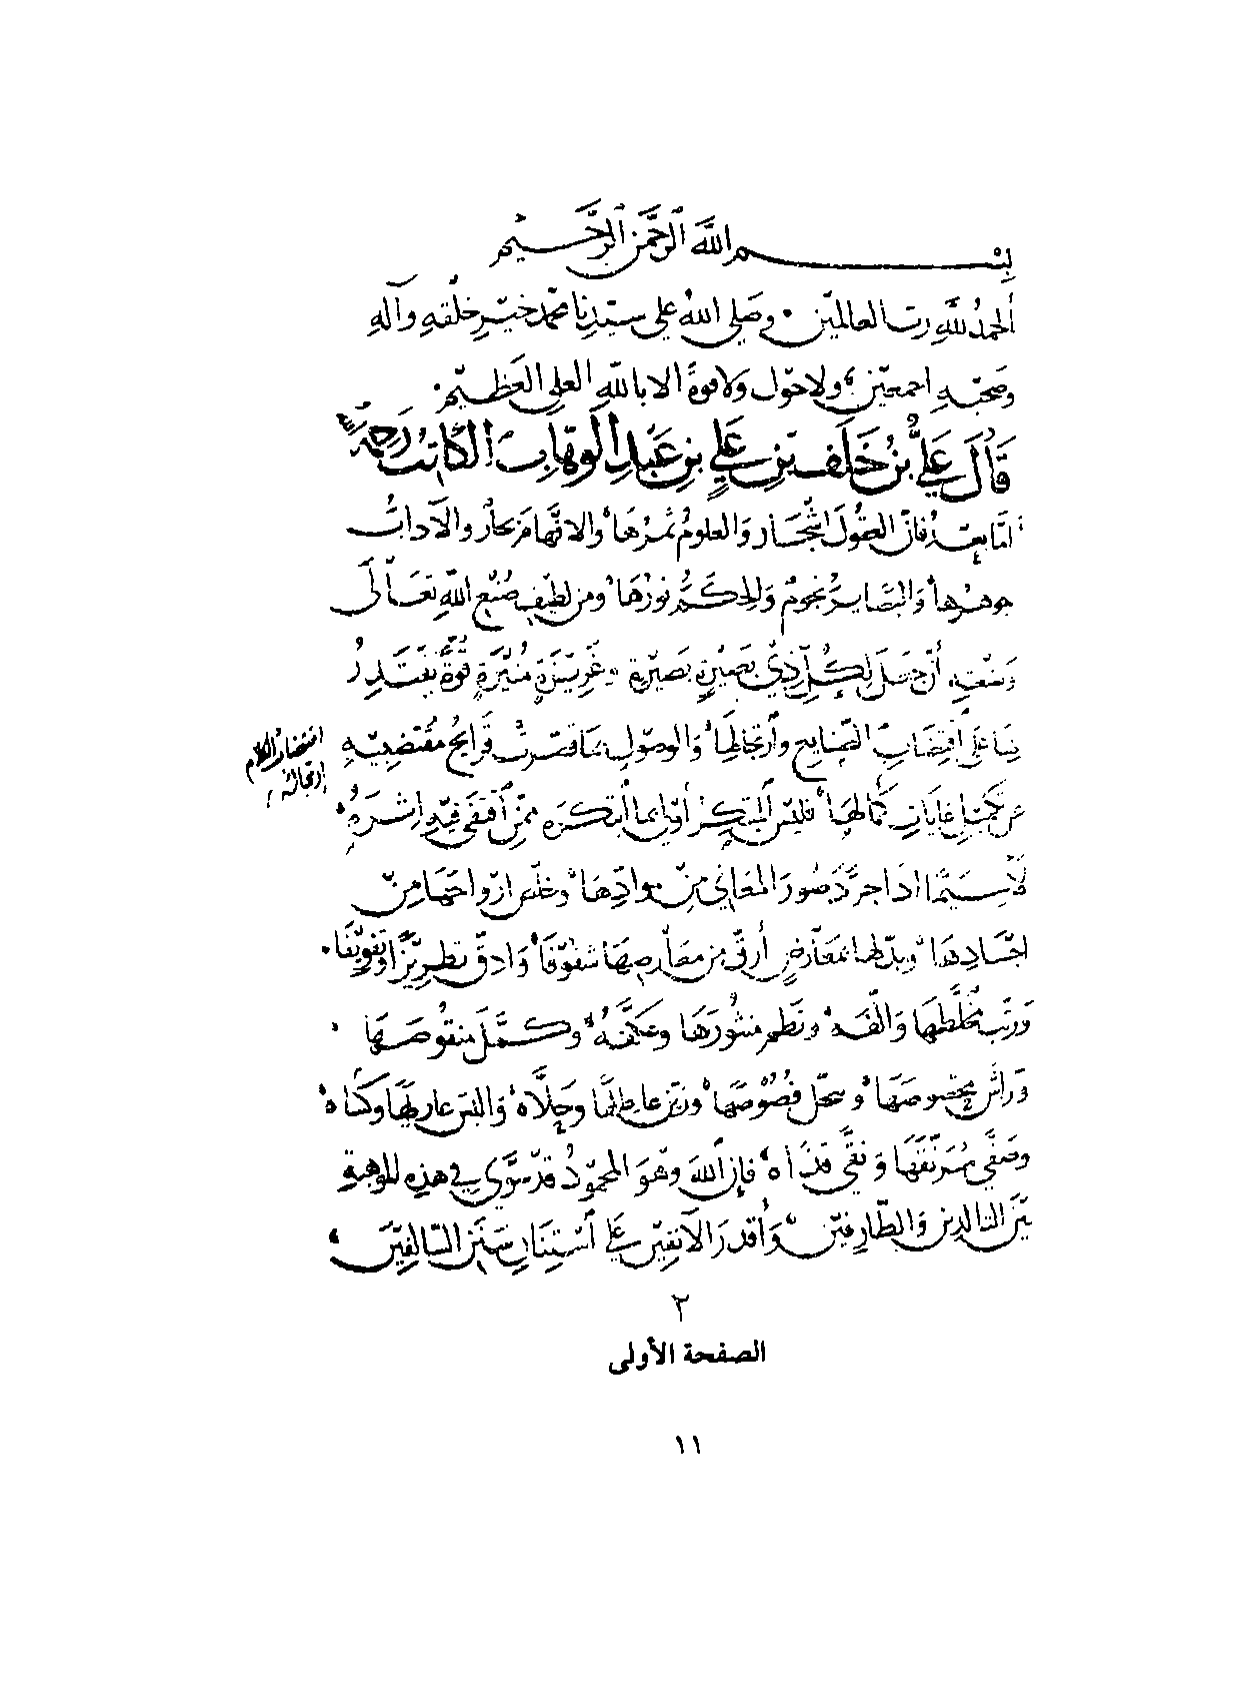 بِسْم اللَّه الرَّحْمَنِ الرَّحِيم
الحمدُ للَّهِ رب العالمين وصلى اللهُ على سيّدنا محمد خير خلقهِ وآلهِ
وصحبهِ اجمعين ولا حول ولا قوةَ الا باللهِ العلي العَظيم
قَالَ عَلِيُّ بنُ خَلَف بن عَلي بنِ عَبدِ الوهَّابِ الكَاتبُ رَحمه الله
امّا بعدُ فانّ العقولَ اشجَار وَالعلومُ ثمرُهَا والافهَام بحَار والآدابُ
جوهرُها وَالبصَاير نجومٌ وَالحِكَمُ نورُهَا ومن لطيفِ صُنع اللهِ تعَالَى
أنْ جعَلَ لِكلِّ ذِي بَصيرةٍ بَصيرة غَرِيزَةٍ مُنيرَةٍ قوَّةً يَقتَدِرُ
بهَا عَلى اقتضَابِ الصَّنايع وَارتجالِهَا وَالوصُولِ بمَا قصّرت قَرايحُ مقتضِبيهِ
عَن تَكميلِ غايَاتِ كمَالِهَا فليسَ المبتكِرُ أولى بما ابْتكرَه ممّنِ اقتفَى فيهِ اثرَهُ
لَا سِيَّمَا اذَا جرَّدَ صُورَ المعَاني مِن موادّهَا وخلّص ارواحَهَا مِن
اجسَادِهَا وبدّلهَا بمعَارضٍ أرقّ من معَارضِهَا شفُوفًا وَادقّ تطريزًا وتفويفًا
وَرتّبَ مُخَلَّطهَا وَالّفَه ونَظم منثُورَهَا وكمَّلَ منقُوصَهَا
وَرَاشَ محصُوصَهَا فُصُوصَهَا وزيّن عاطِلَهَا وَحلَّاهُ وَالبسَ عاريَهَا وكسَاهُ
وصَفَّى مُرَنّقَهَا وَنقَّى قذَاهُ فإن اللهَ وَهوَ المحمُودُ قد سَوَّى في هذِهِ الموهبةِ
بَيْنَ التالدين وَالطّارفينَ وَأقدرَ الآنفِينَ عَلى اسْتِنَانِ سَنَنِ السّالفِينَ
اقتضاب الكلام
ارتجاله
٢
الصفحة الأولى
١١